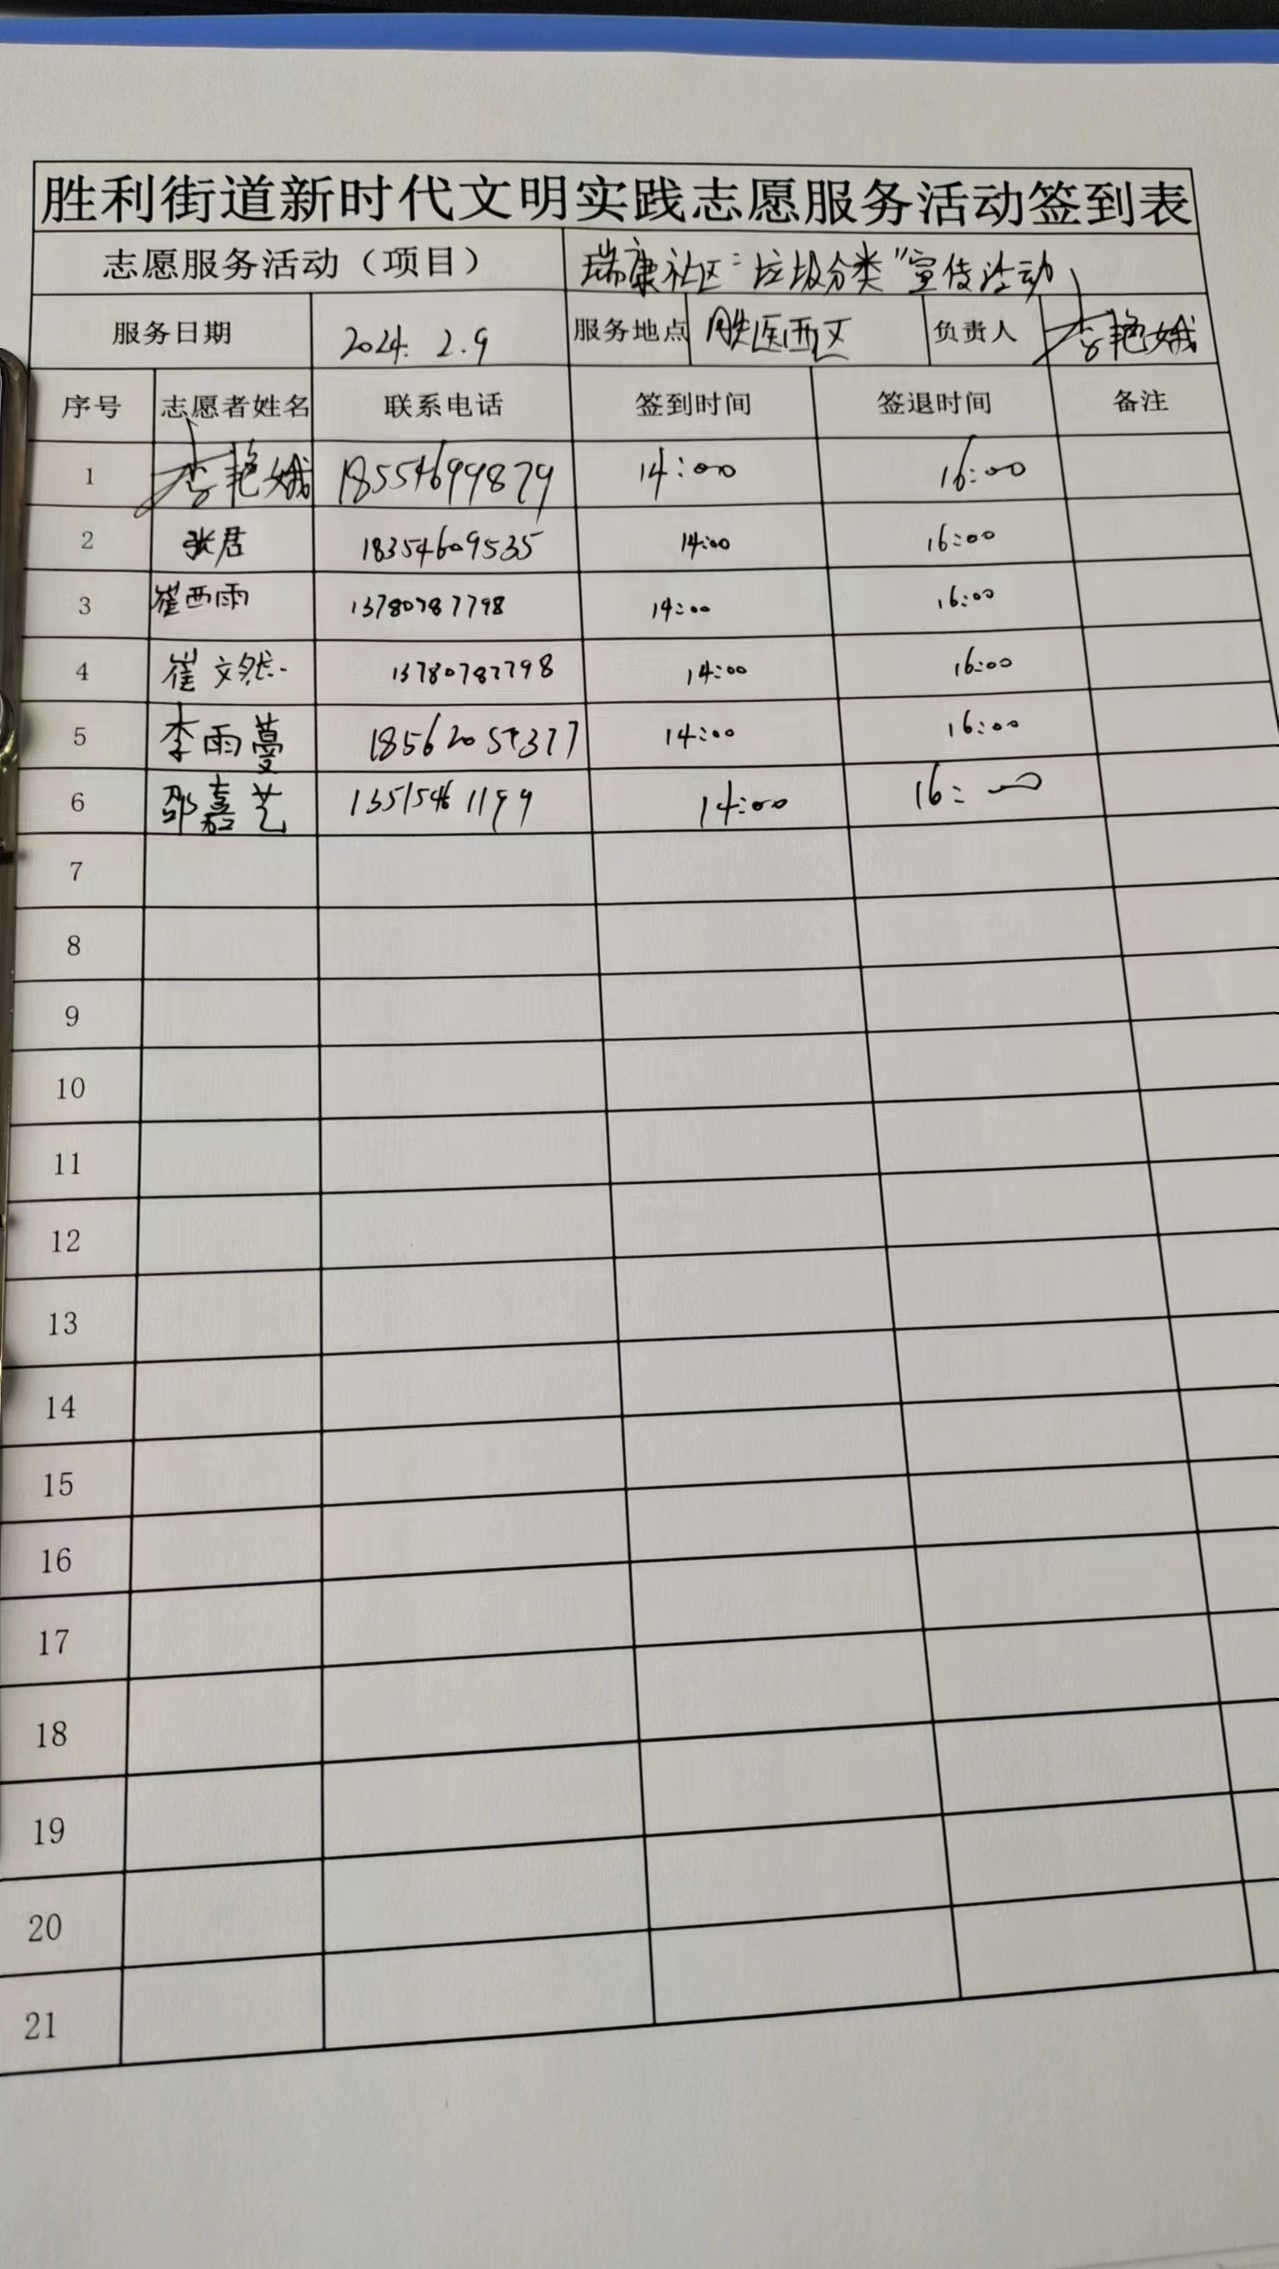 胜利街道新时代文明实践志愿服务活动签到表
志愿服务活动（项目） 瑞康社区"垃圾分类"宣传活动
服务日期 2024. 2.9 服务地点 胜医西区 负责人 李艳娥
序号 志愿者姓名 联系电话 签到时间 签退时间 备注
1 李艳娥 18554699879 14:00 16:00
2 张君 18354609535 14:00 16:00
3 崔西雨 13780787798 14:00 16:00
4 崔文然 13780787798 14:00 16:00
5 李雨蔓 14:00 16:00
6 邵嘉艺 14:00 16:00
7
8
9
10
11
12
13
14
15
16
17
18
19
20
21